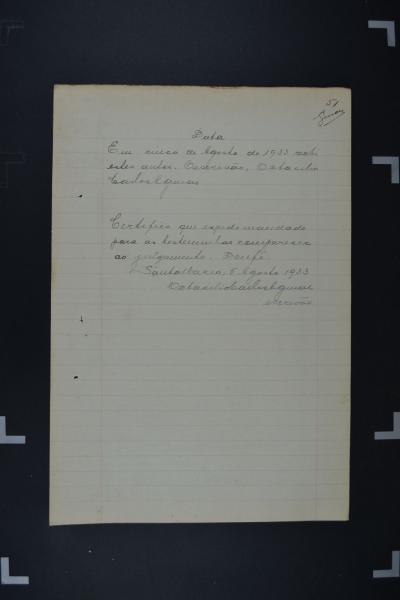 51
Data
Em cinco de Agosto de 1933 recebi
estes autos. O escrivão, Octacilio
Carlos
Certifico que expedi mandado
para as testemunhas comparecer
ao julgamento. Dou fé.
Santa Maria, 5 Agosto 1933
Octacilio Carlos
escrivão